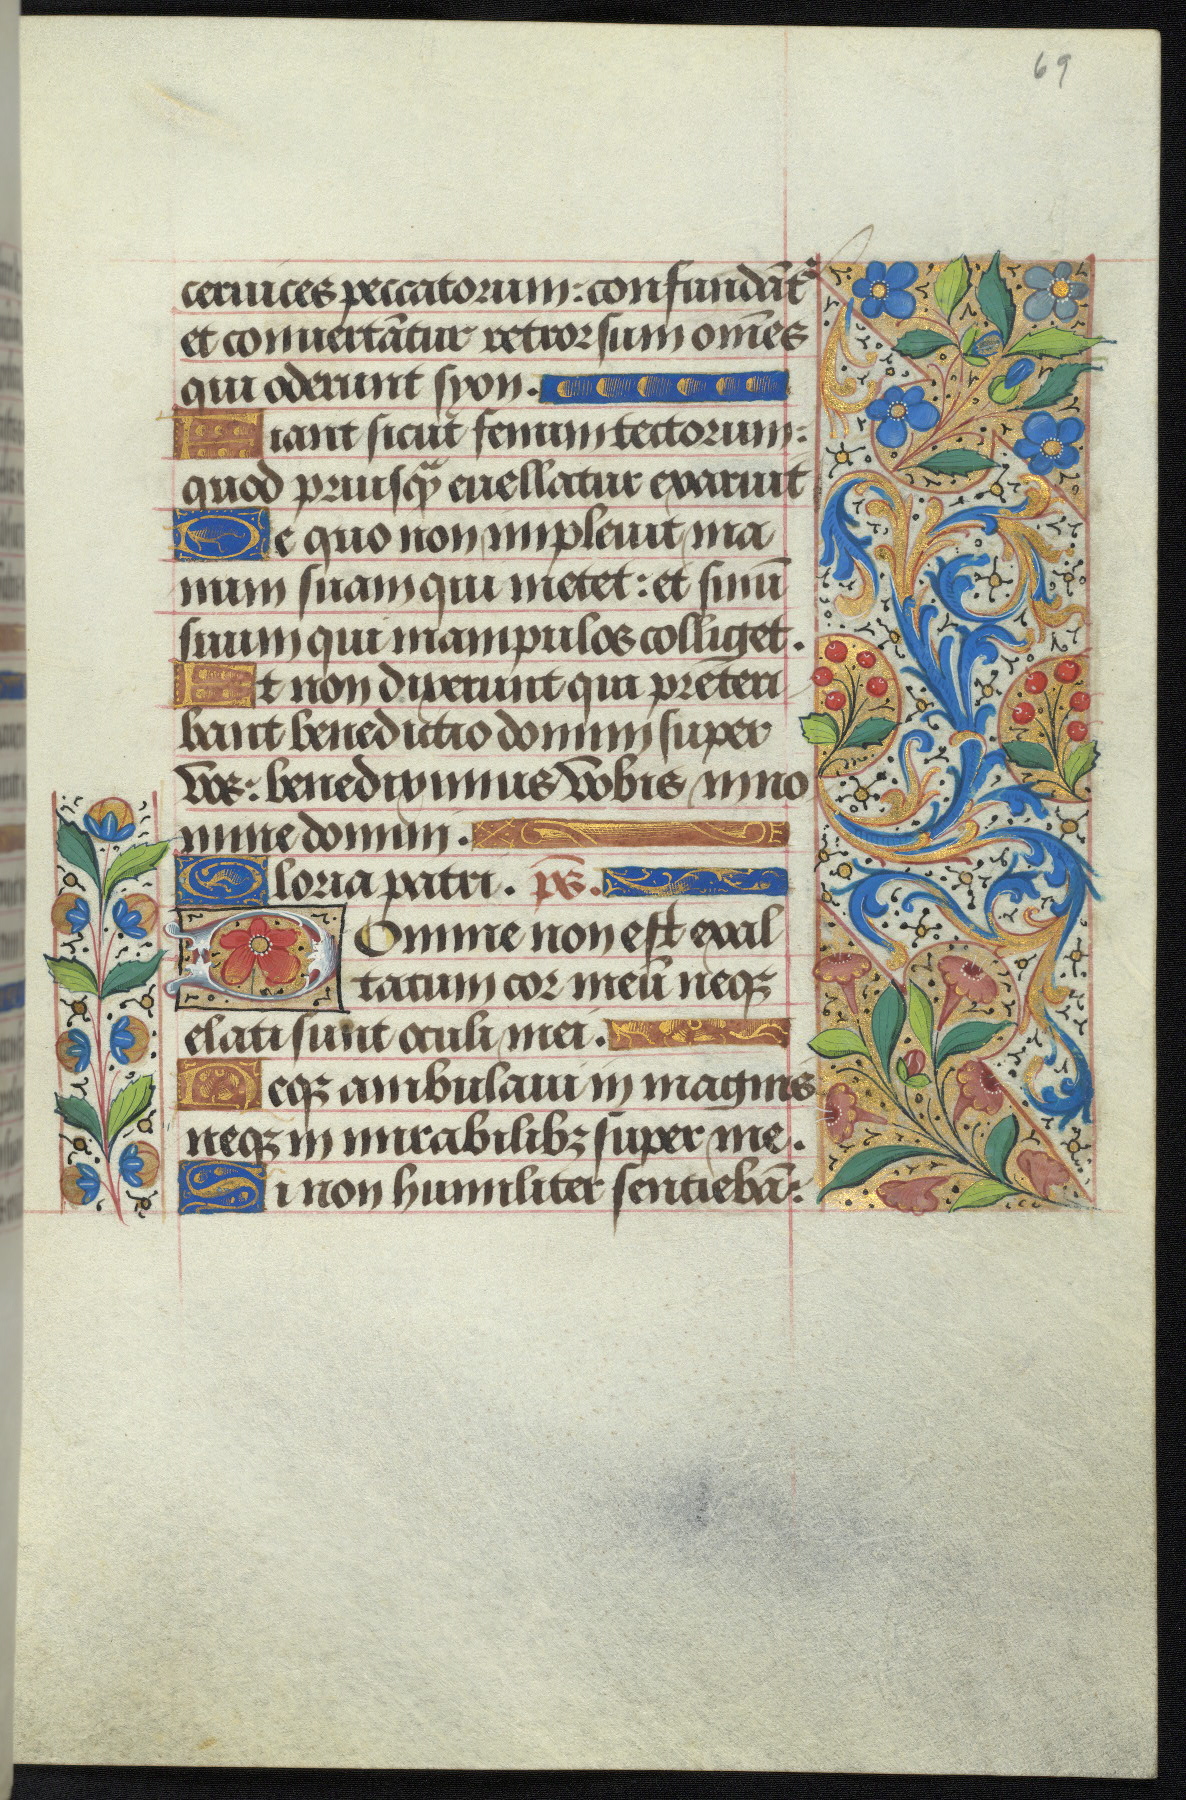 69
ceruices peccatorum: confundāt᷑
et conuertātur retrorsum om̄es
qui oderunt syon.
Fiant sicut fenum tectorum:
quod priusq̄ȝ euellatur exaruit
De quo non impleuit ma
num suam qui metet: et sinū
suum qui manipulos colliget.
Et non dixerunt qui pretēri
bant benedictio domini super
vos: benediximus vobis in no
mine domini.
Gloria patri. p̄s.
Domine non est exal
tatum cor meū neqȝ
elati sunt oculi mei.
Neqȝ ambulaui in magnis
neqȝ in mirabilibȝ super me.
Si non humiliter sentiebā: